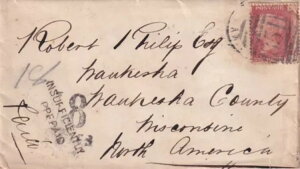 Robert Philip Esq
Waukesha
Waukesha County
Wisconsine
North America
1/
INSUFFICIENTLY
PREPAID
8
Paid